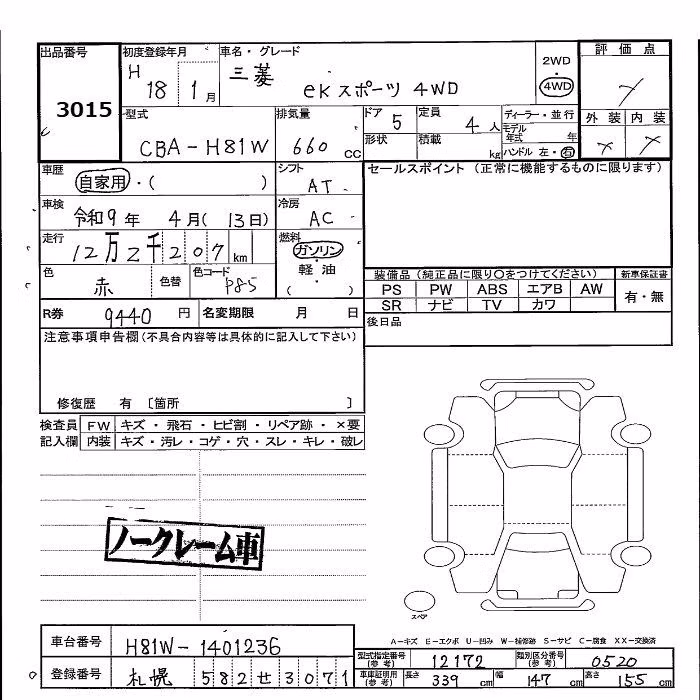 出品番号 初度登録年月 車名・グレード 評価点
3015 H 18 1月 三菱 ekスポーツ 4WD 2WD 4WD
型式 排気量 ドア 定員 ディーラー・並行 外装 内装
CBA-H81W 660 CC 5 4人 モデル年式 年
形状 積載 kg ハンドル 左・右
車歴 自家用・( ) シフト AT セールスポイント (正常に機能するものに限ります)
車検 令和9年 4月(13日) 冷房 AC
走行 12万2千207km 燃料 ガソリン・軽油・( )
色 赤 色替 色コード P85
装備品 (純正品に限り〇をつけてください) 新車保証書
PS PW ABS エアB AW 有・無
SR ナビ TV カワ
R券 9440円 名変期限 月 日 後日品
注意事項申告欄(不具合内容等は具体的に記入して下さい)
修復歴 有 〔箇所 〕
検査員 FW キズ・飛石・ヒビ割・リペア跡・×要
記入欄 内装 キズ・汚レ・コゲ・穴・スレ・キレ・破レ
ノークレーム車
スペア
A-キズ E-エクボ U-凹み W-補修跡 S-サビ C-腐食 XX-交換済
車台番号 H81W-1401236
型式指定番号(参考) 12172 類別区分番号(参考) 0520
登録番号 札幌 582 せ 3071
車庫証明用(参考) 長さ 339cm 幅 147cm 高さ 155cm